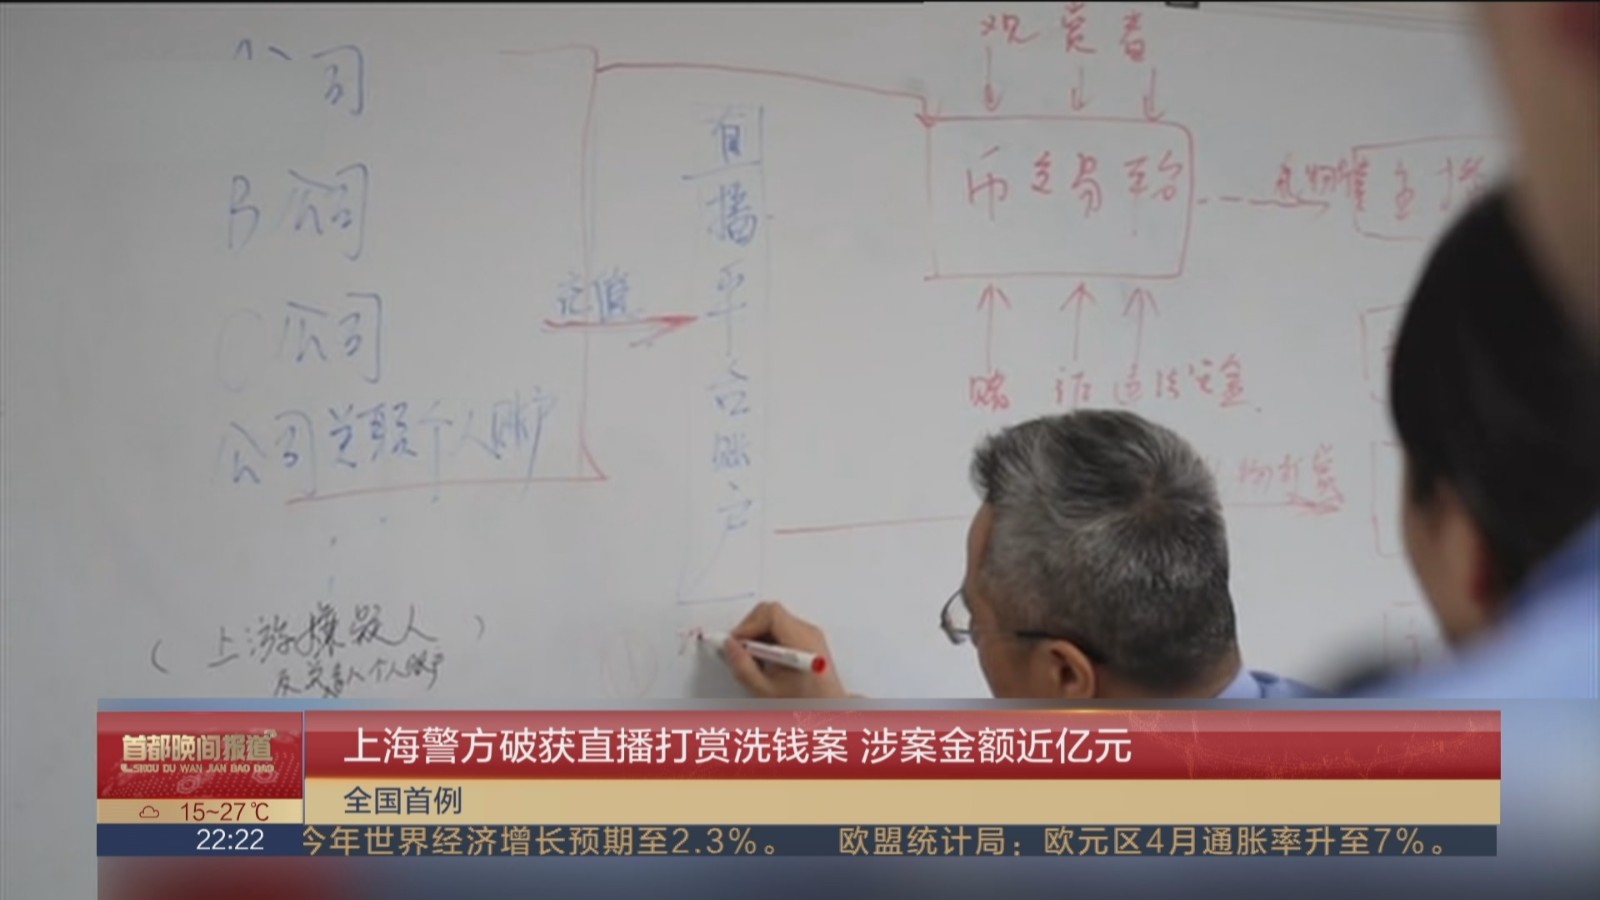 观赏者
公司
B 公司
C 公司
公司关联个人账户
充值
直播平台账户
币交易平台
主播
赌 诈 违法资金
物打赏
(上游嫌疑人)
个人账户
首都晚间报道
SHOU DU WAN JIAN BAO DAO
上海警方破获直播打赏洗钱案 涉案金额近亿元
全国首例
15~27℃
22:22
今年世界经济增长预期至2.3%。 欧盟统计局：欧元区4月通胀率升至7%。